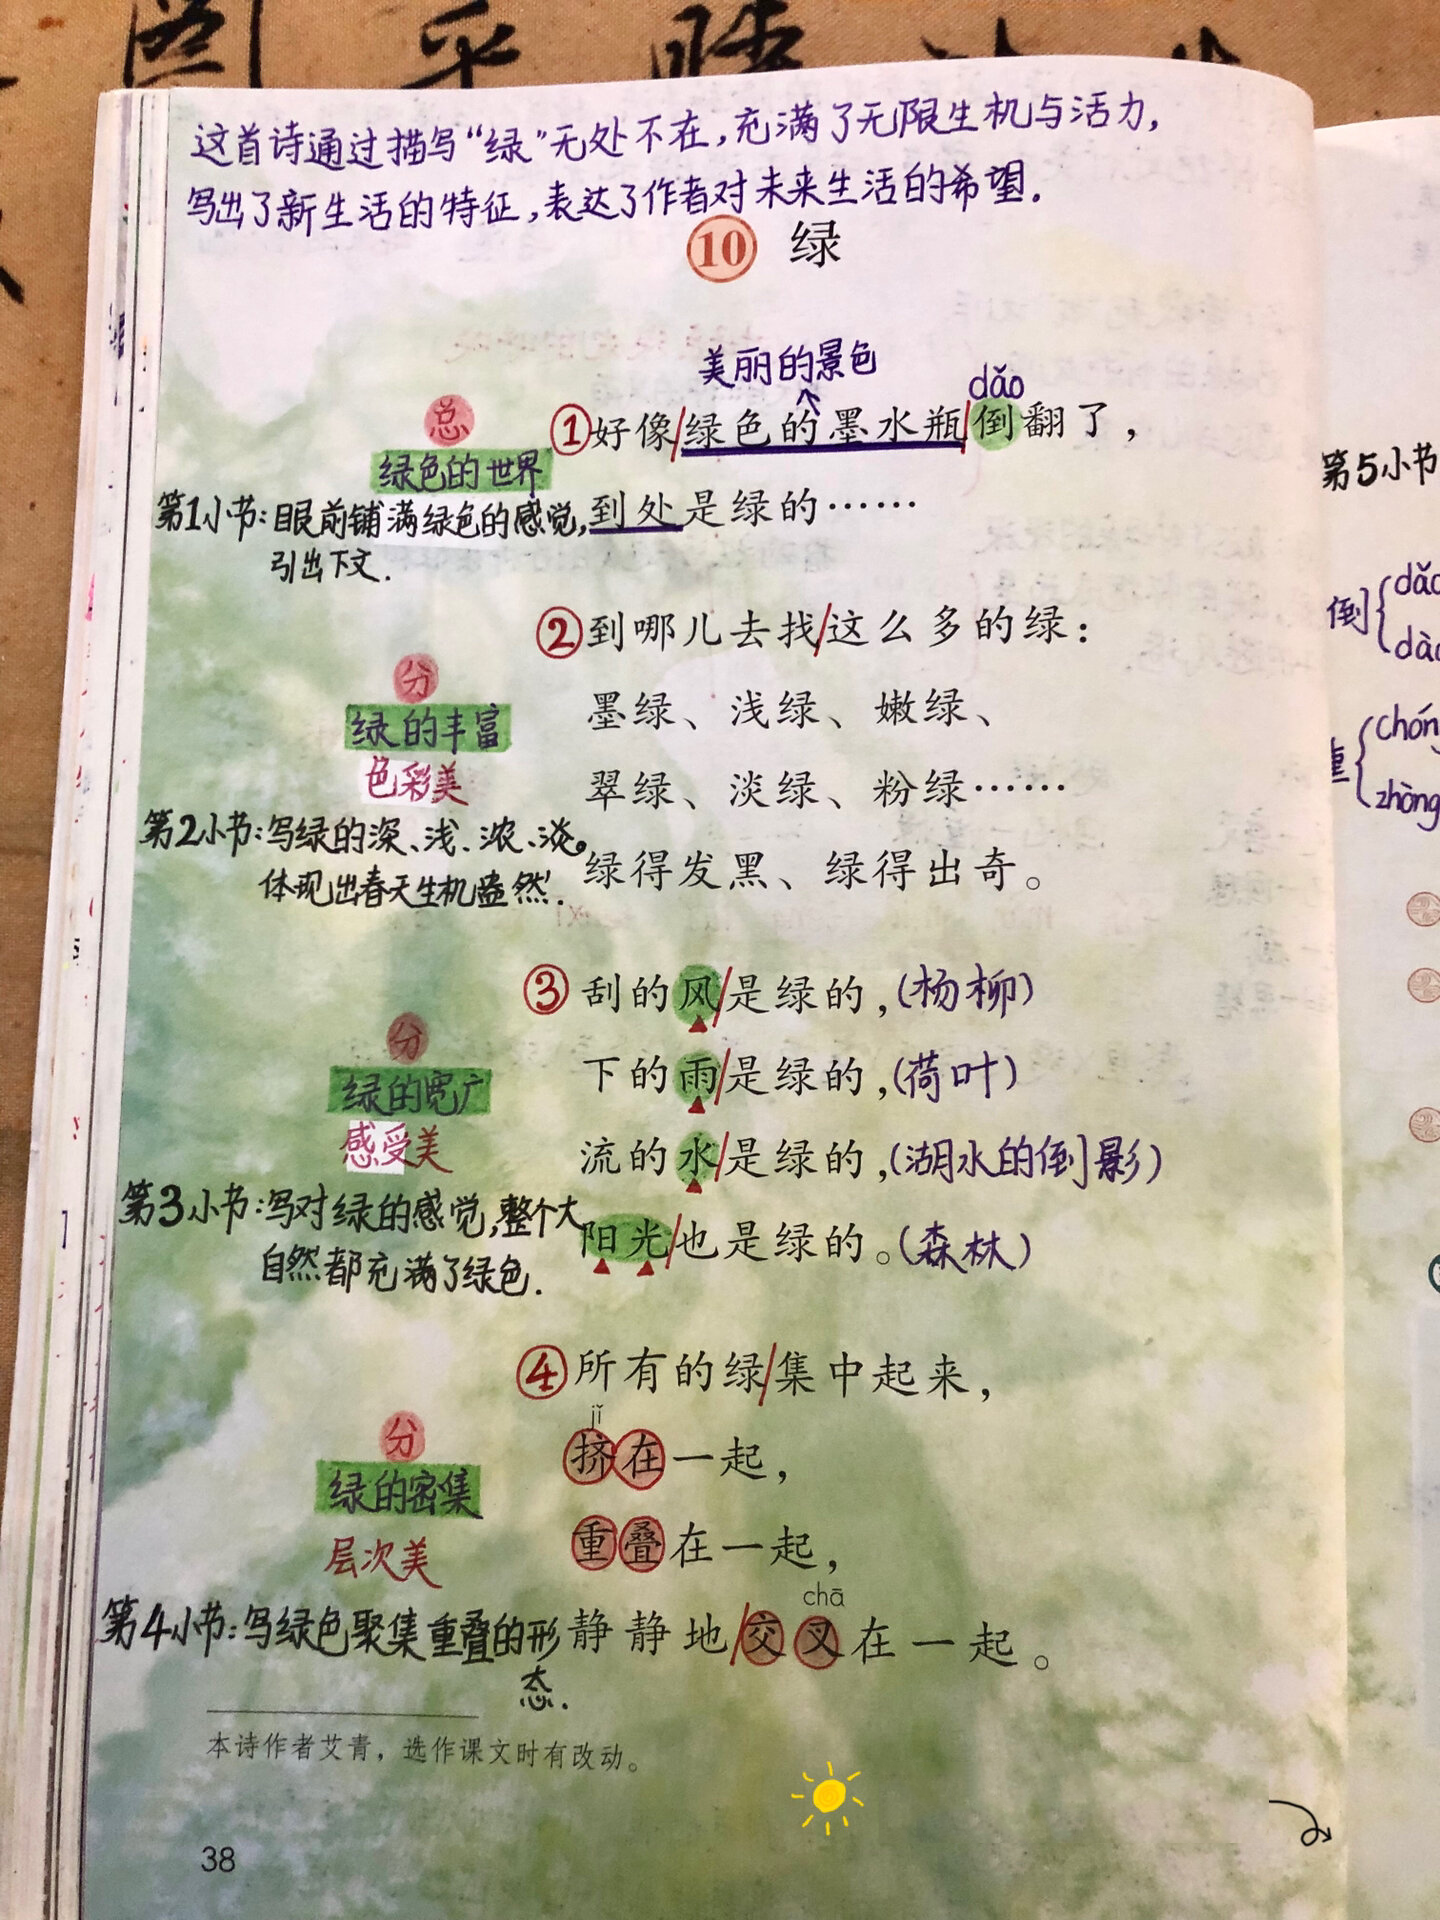 这首诗通过描写“绿”无处不在,充满了无限生机与活力,
写出了新生活的特征,表达了作者对未来生活的希望.
10 绿
美丽的景色
dǎo
总
①好像/绿色的墨水瓶/倒翻了，
绿色的世界
第1小节:眼前铺满绿色的感觉,
到处是绿的……
引出下文.
②到哪儿去找/这么多的绿：
分
墨绿、浅绿、嫩绿、
绿的丰富
色彩美
翠绿、淡绿、粉绿……
第2小节:写绿的深、浅、浓、淡。
绿得发黑、绿得出奇。
体现出春天生机盎然.
③刮的风/是绿的，(杨柳)
分
下的雨/是绿的，(荷叶)
绿的宽广
感受美
流的水/是绿的，(湖水的倒影)
第3小节:写对绿的感觉,整个大
阳光/也是绿的。(森林)
自然都充满了绿色.
④所有的绿/集中起来，
jǐ
分
挤在一起，
绿的密集
层次美
重叠在一起，
chā
第4小节:写绿色聚集重叠的形
静静地/交叉在一起。
态.
本诗作者艾青，选作课文时有改动。
38
第5小节
倒
dǎo
dào
chóng
zhòng